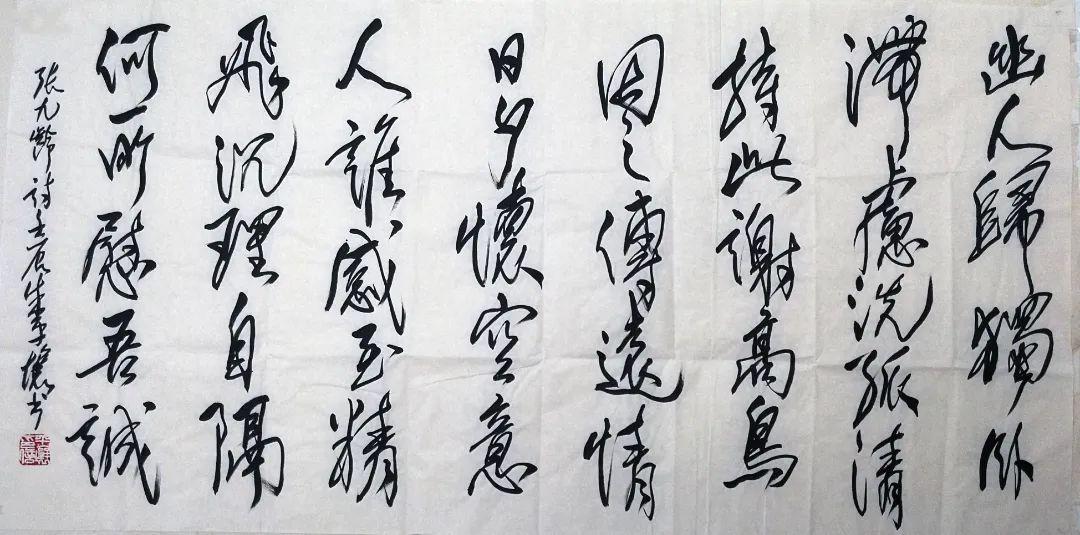 幽人歸獨卧
滯慮洗孤清
持此謝高鳥
因之傳遠情
日夕懷空意
人誰感至精
飛沉理自隔
何所慰吾誠
张九龄诗